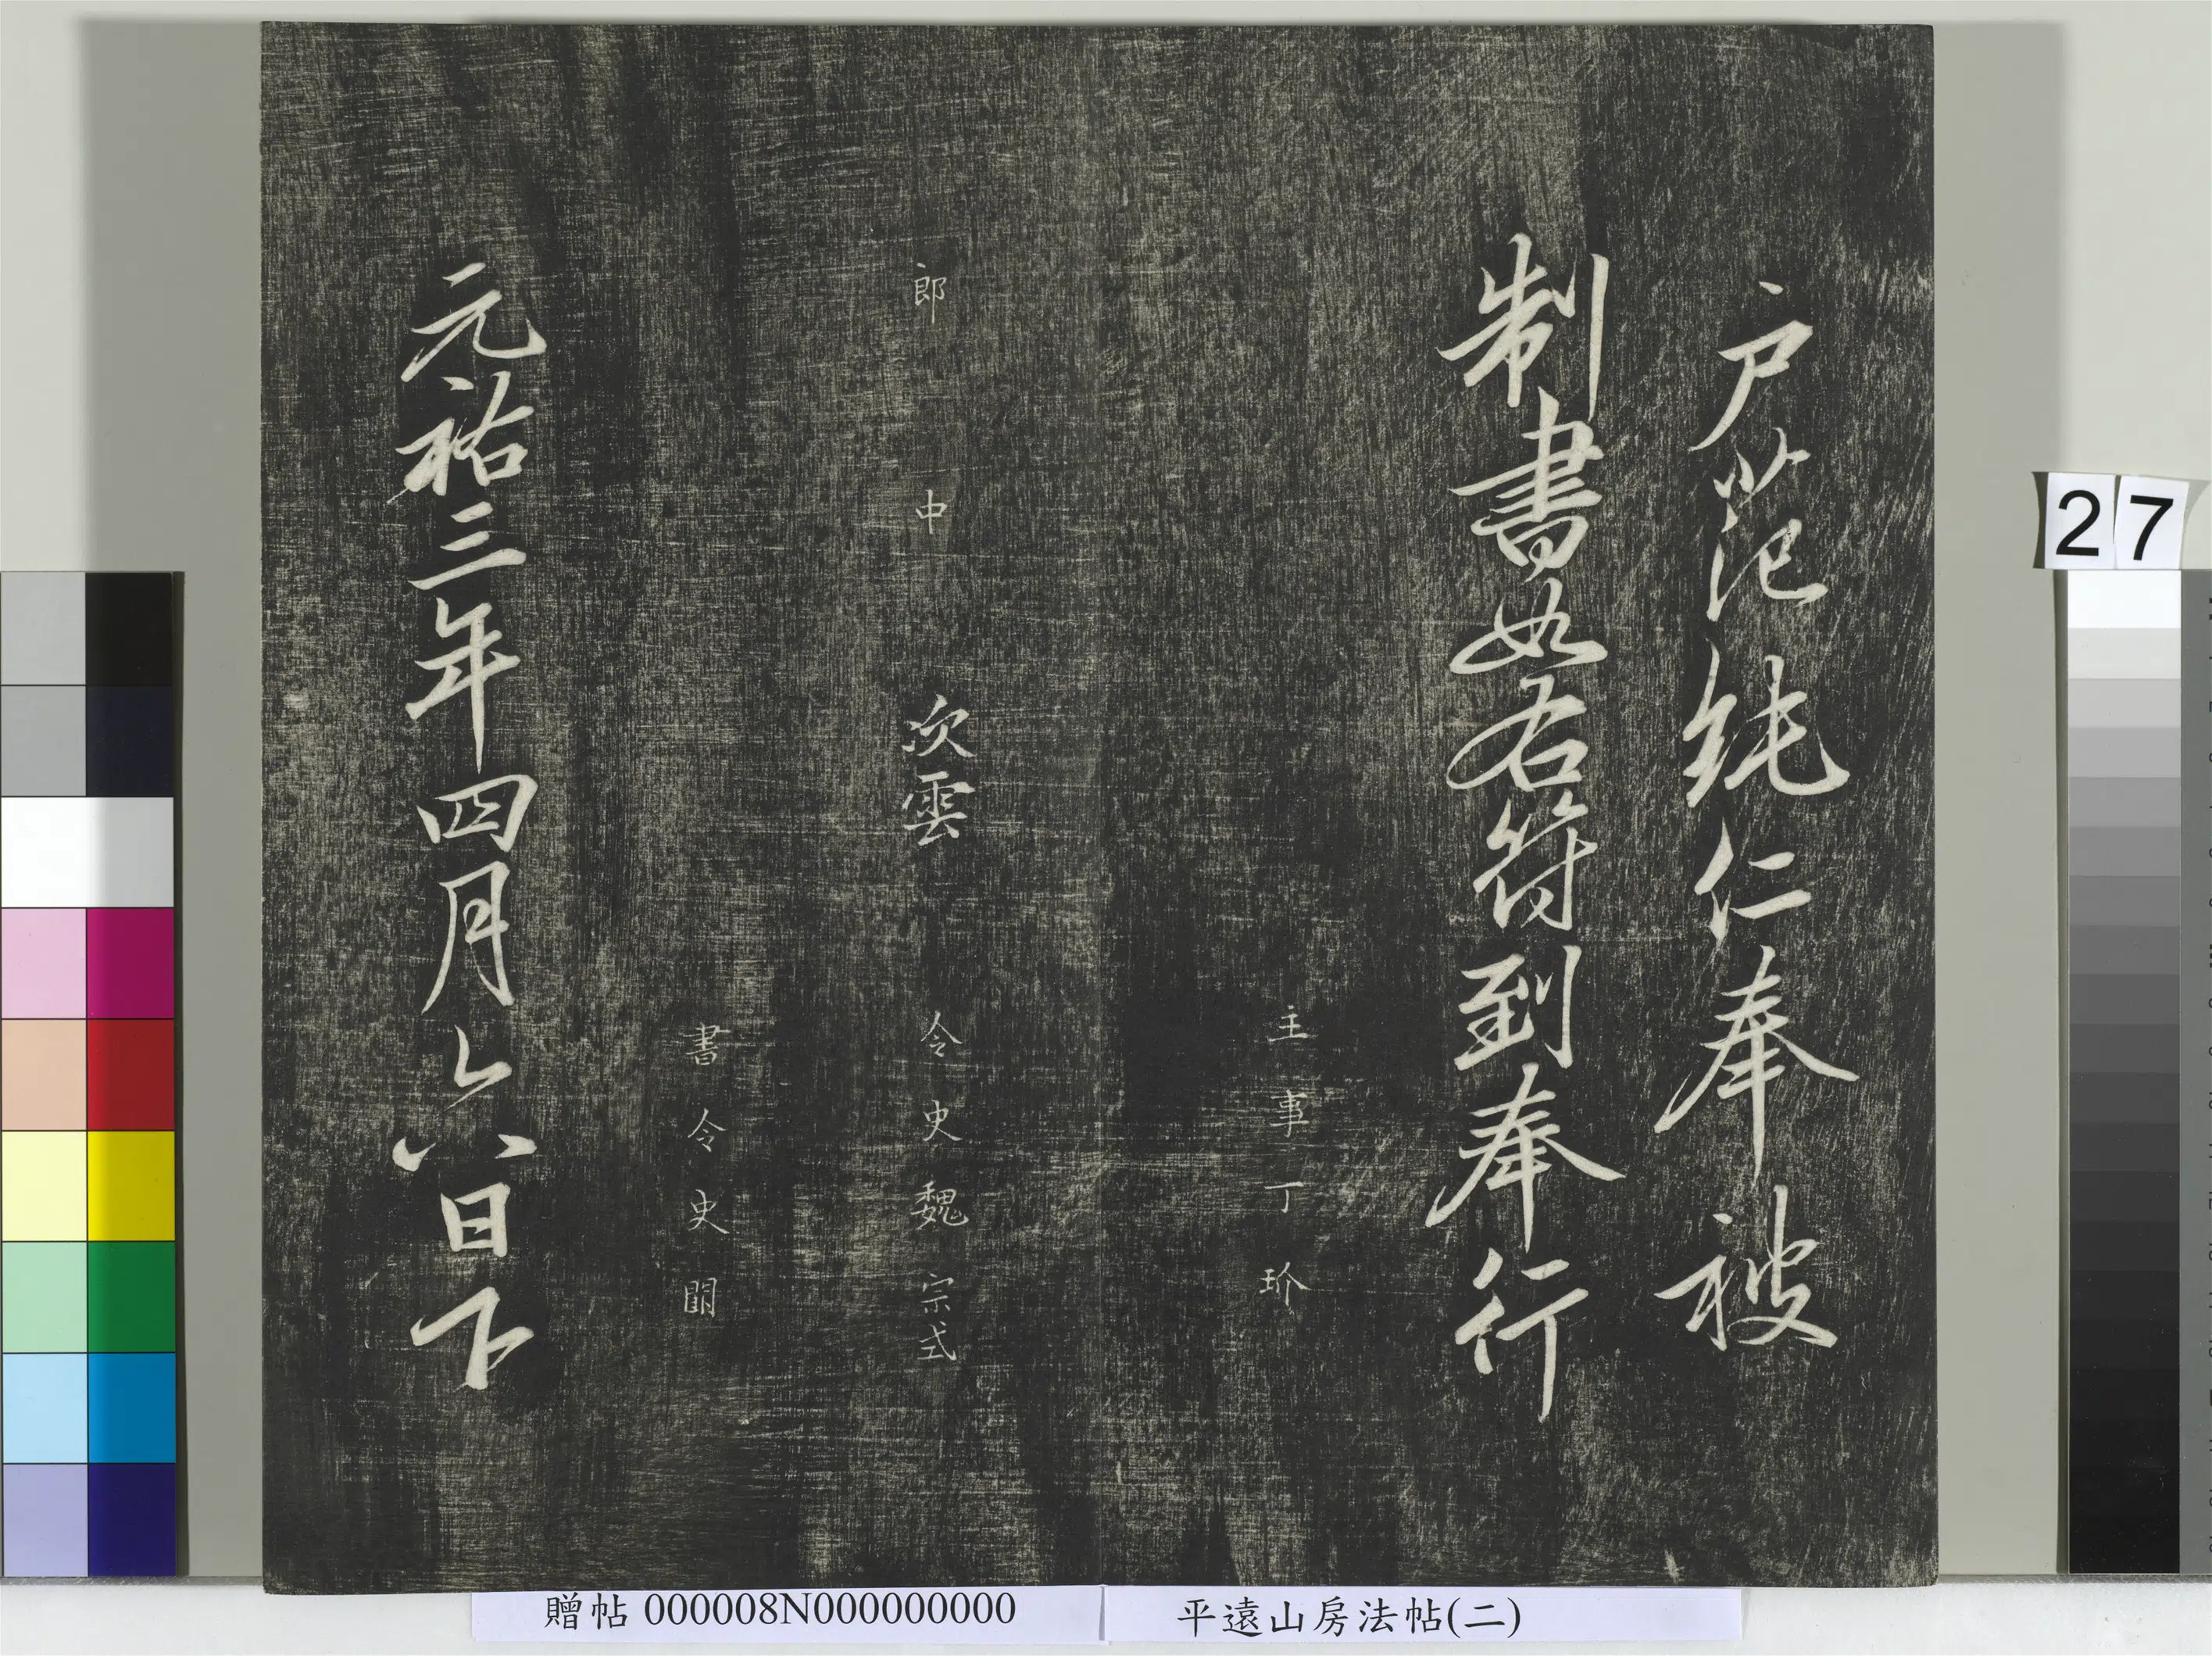 戶范純仁奉被
制書如右符到奉行
主事丁玠
郎中 次雲 令史魏宗式
書令史
元祐三年四月六日下
27
贈帖 000008N000000000
平遠山房法帖(二)